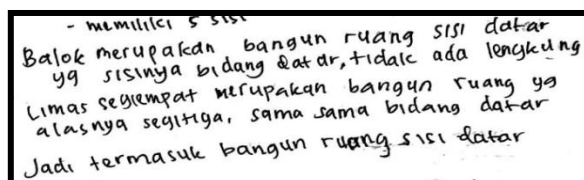 - memiliki 5 sisi
Balok merupakan bangun ruang sisi datar
yg sisinya bidang datar, tidak ada lengkung
Limas segiempat merupakan bangun ruang yg
alasnya segitiga, sama sama bidang datar
Jadi termasuk bangun ruang sisi datar